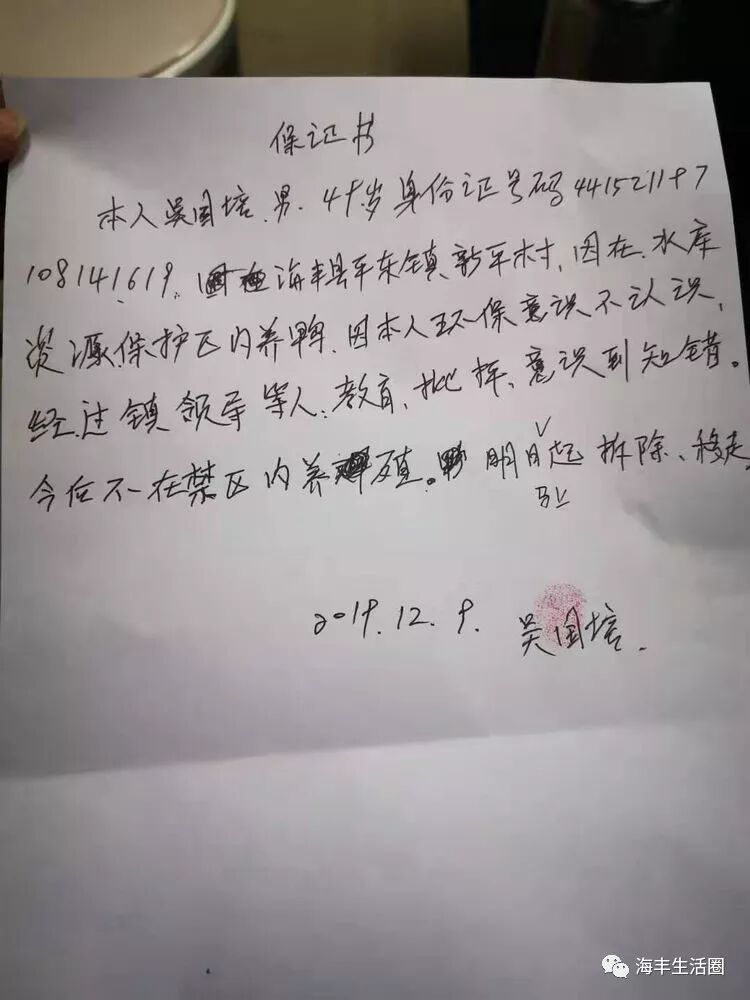 保证书
本人吴国培.男.49岁身份证号码441521197
108141619.海丰县平东镇新平村,因在水库
资源保护区内养鸭.因本人环保意识不认识,
经过镇领导等人:教育、批挥、意识到知错。
今后不在禁区内养殖。明日起拆除、移走.
2019.12.9. 吴国培.
海丰生活圈